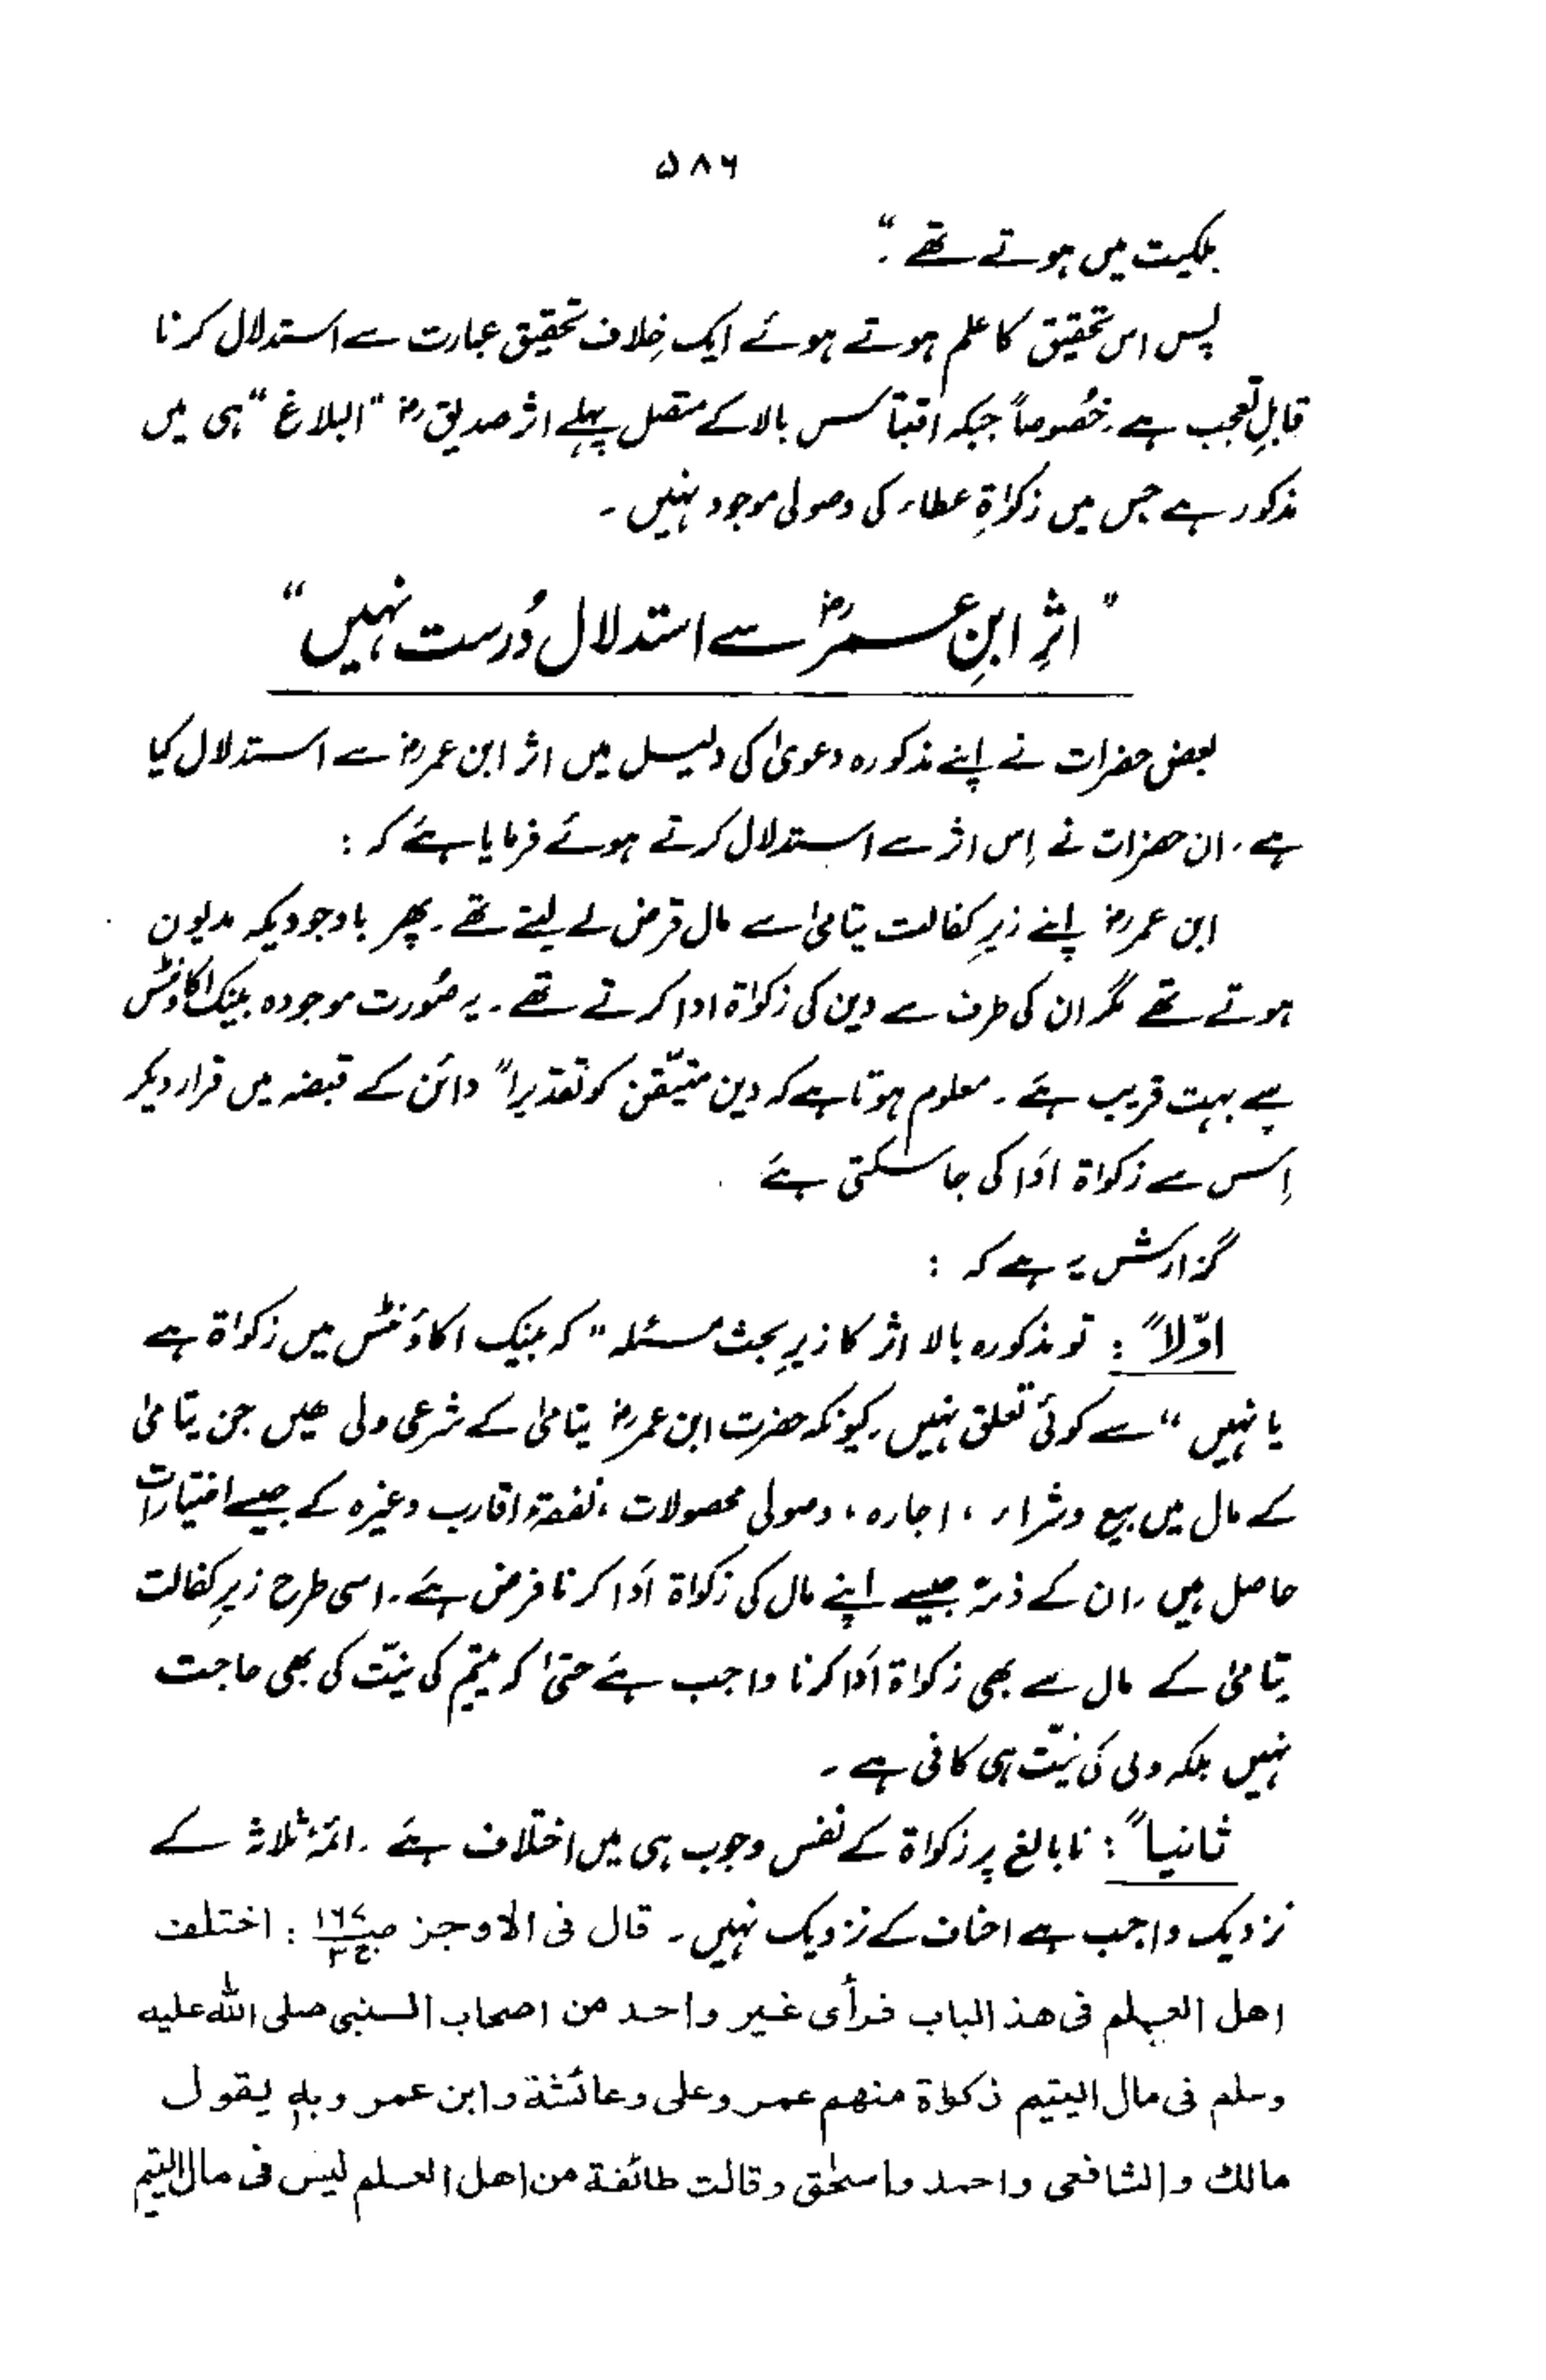 ۵۸۶
ملکیت میں ہوتے تھے ۔“
پس اس تحقیق کا علم ہوتے ہوئے ایک خِلاف تحقیق عبارت سے استدلال کرنا
قابلِ تعجب ہے۔ خصُوصاً جبکہ اقتباس بالا کے متصل پہلے اثر صدیق رضؓ ”البلاغ“ ہی میں
مذکور ہے جس میں زکوٰۃِ عطاء کی وصولی موجود نہیں ۔
”اثرِ ابنِ عمرؓ سے استدلال دُرست نہیں“
بعض حضرات نے اپنے مذکورہ دعویٰ کی دلیل میں اثر ابن عمرؓ سے استدلال کیا
ہے ۔ ان حضرات نے اِس اثر سے استدلال کرتے ہوئے فرمایا ہے کہ :
ابن عمرؓ اپنے زیرِ کفالت یتامیٰ سے مال قرض لے لیتے تھے ۔ پھر باوجودیکہ مدیون
ہوتے تھے مگر ان کی طرف سے دین کی زکوٰۃ ادا کرتے تھے ۔ یہ صُورت موجودہ بینک اکاؤنٹس
سے بہت قریب ہے ۔ معلوم ہوتا ہے کہ دین متیقّن کو تقدیراً دائن کے قبضہ میں قرار دیکر
اِس سے زکوٰۃ ادَا کی جاسکتی ہے
گزارش یہ ہے کہ :
اوّلاً : تو مذکورہ بالا اثر کا زیرِ بحث مسئلہ ”کہ بینک اکاؤنٹس میں زکوٰۃ ہے
یا نہیں“ سے کوئی تعلق نہیں۔ کیونکہ حضرت ابن عمرؓ یتامیٰ کے شرعی ولی ھیں جن یتامیٰ
کے مال میں بیع وشراء ، اجارہ ، وصولی محصولات ، نفقۂ اقارب وغیرہ کے جیسے اختیارات
حاصل ہیں ۔ ان کے ذمّہ جیسے اپنے مال کی زکوٰۃ ادَا کرنا فرض ہے ۔ اسی طرح زیرِ کفالت
یتامیٰ کے مال سے بھی زکوٰۃ ادَا کرنا واجب ہے حتیٰ کہ یتیم کی نیّت کی بھی حاجت
نہیں بلکہ ولی کی نیّت ہی کافی ہے ۔
ثانیاً : نابالغ پر زکوٰۃ کے نفس وجوب ہی میں اختلاف ہے ۔ ائمۂ ثلاثہ کے
نزدیک واجب ہے احناف کے نزدیک نہیں ۔ قال فی الاوجز : اختلف
اھل العلم فی ھذ الباب فرأی غیر واحد من اصحاب النبی صلی اللہ علیہ
وسلم فی مال الیتیم زکوٰۃ منھم عمر وعلی وعائشۃ وابن عمر وبہٖ یقول
مالک والشافعی واحمد واسحٰق وقالت طائفۃ من اھل العلم لیس فی مال الیتیم